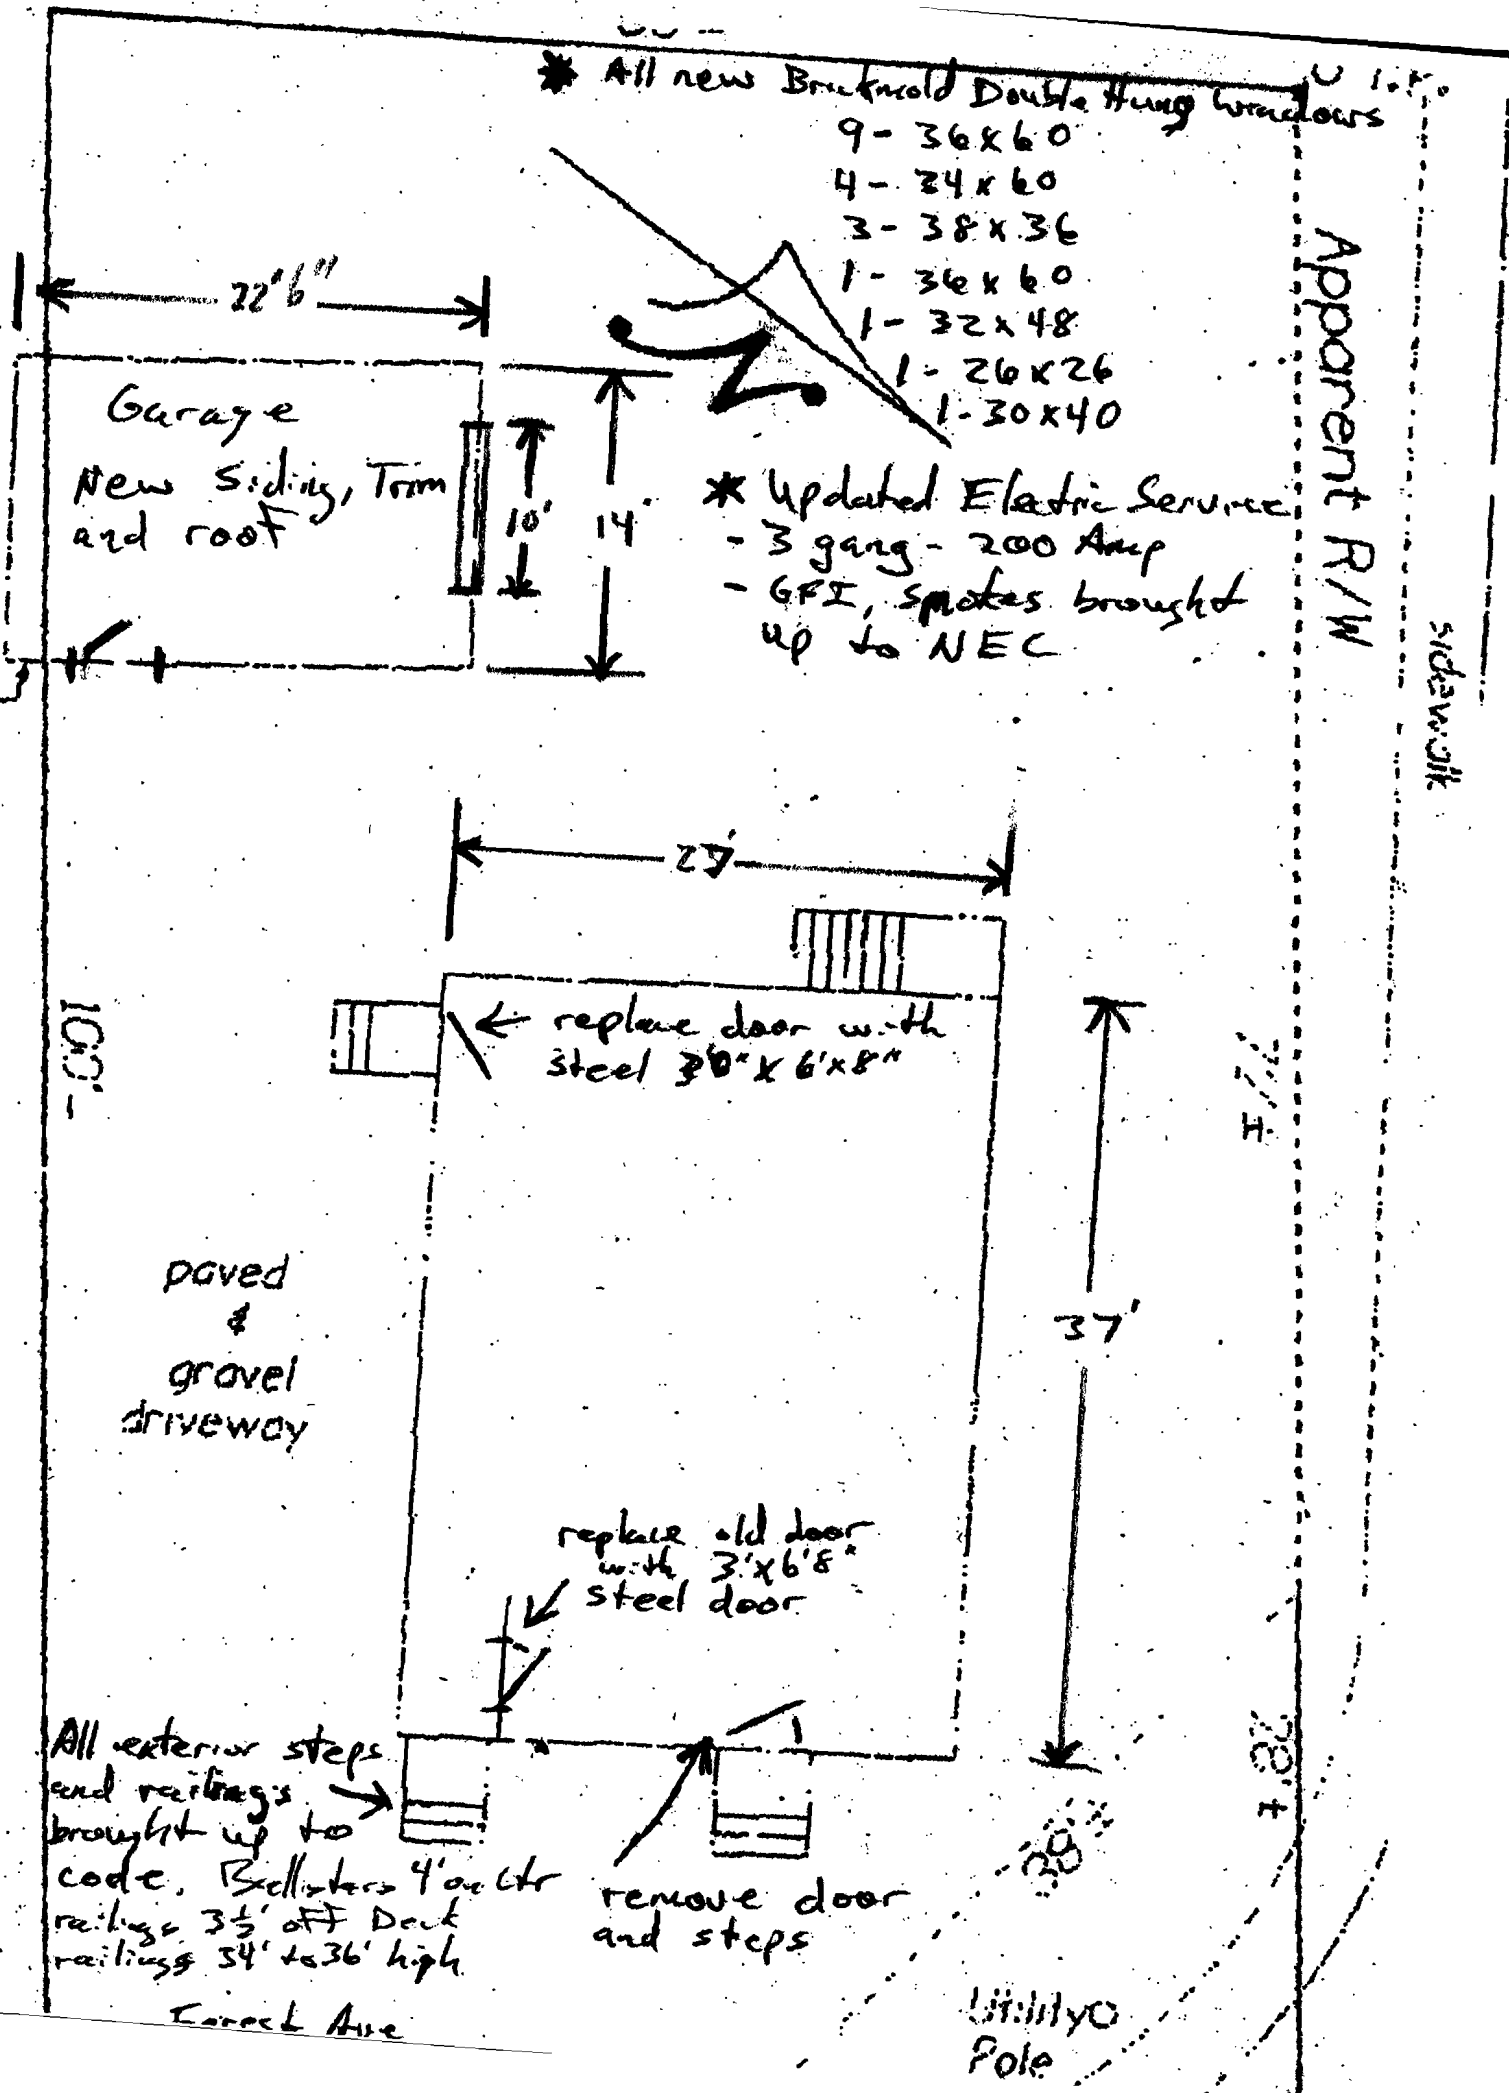 * All new Brickmold Double Hung windows
9 - 36x60
4 - 34x60
3 - 38x36
1 - 36x60
1 - 32x48
1 - 26x26
1 - 30x40
22'6"
Garage
New Siding, Trim
and roof
10'
14'
* Updated Electric Service
- 3 gang - 200 Amp
- GFI, smokes brought
up to NEC
Apparent R/W
sidewalk
100'-
replace door with
steel 3'0" x 6'x8"
77'±
37'
paved
&
gravel
driveway
replace old door
with 3'x6'8"
steel door
All exterior steps
and railings
brought up to
code. Ballisters 4' on Ctr
railings 3½' off Deck
railings 34' to 36' high
remove door
and steps
28'±
38'±
Utility
Pole
Ave